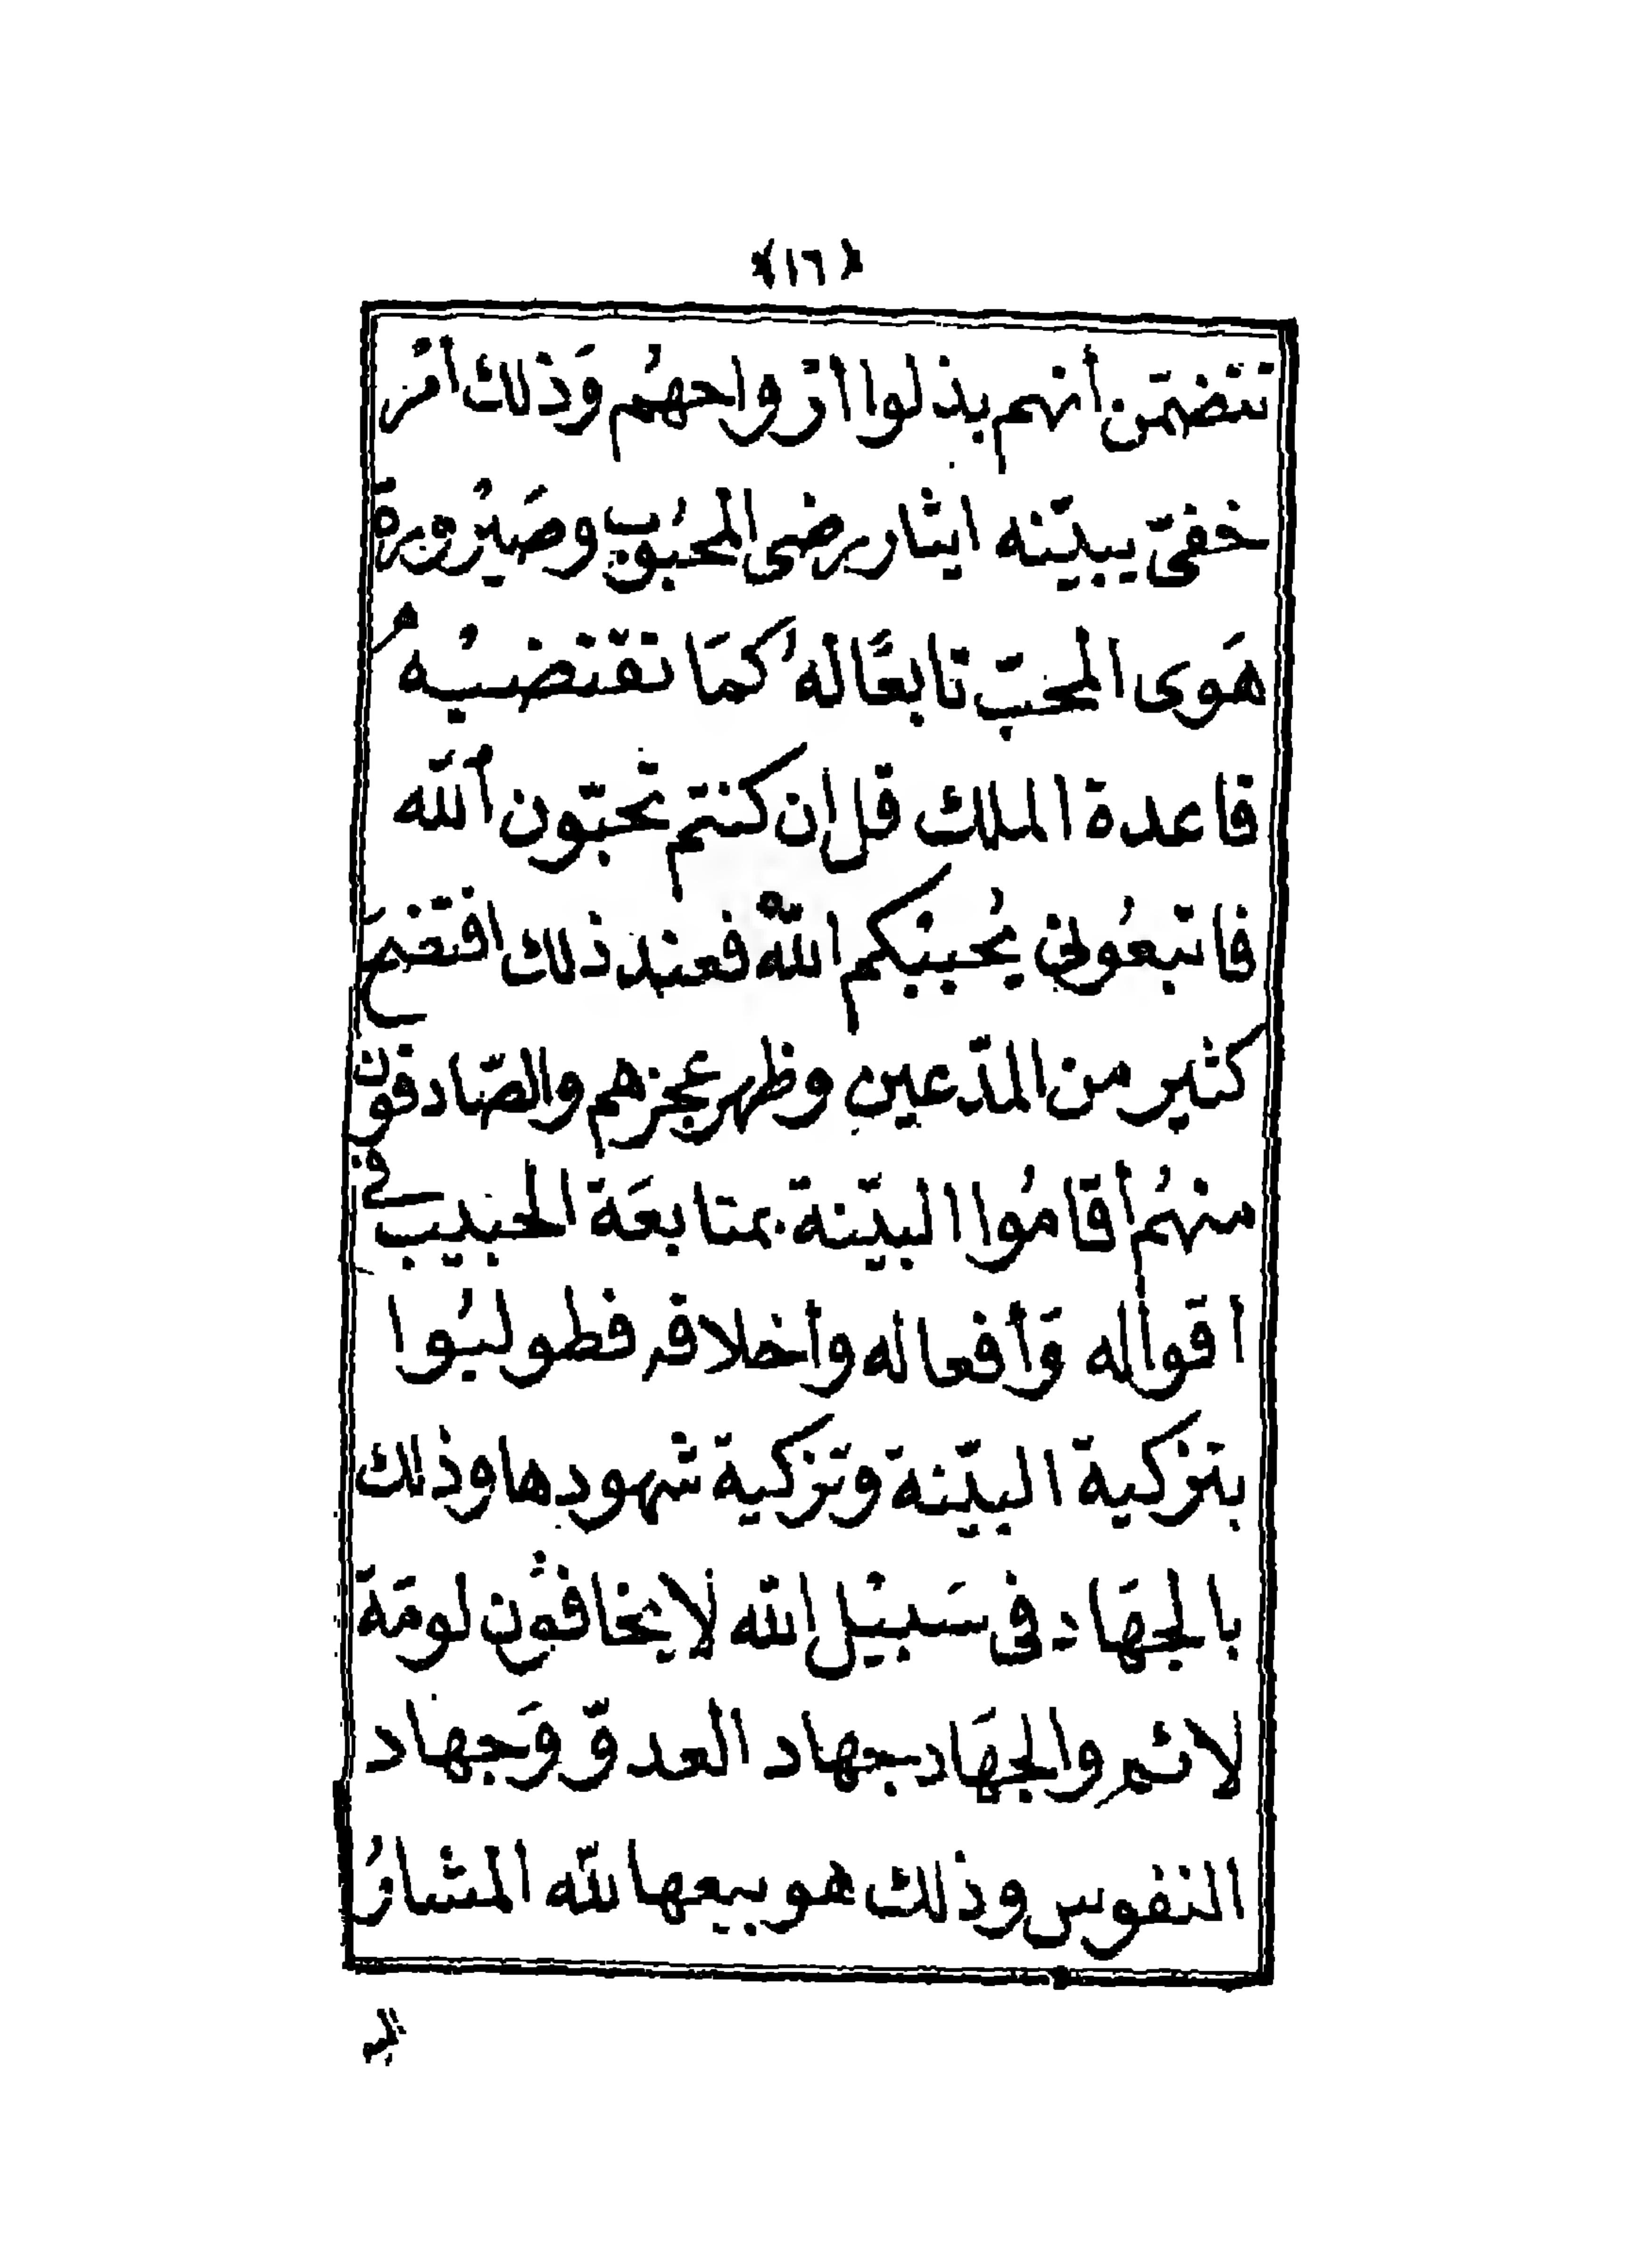 ﴿١٦﴾
تتضمّن أنهم بذلوا ارْواحهُم وَذلك أمْر
خفىّ يبيّنه ايثار رضى المحبُوب وصَيْرُورة
هَوى المحبّ تابعًا لهُ كمَا تقْتضيْه
قاعدة الملك قل ان كنتم تحبّون ألله
فاتبعُونى يُحببْكم اللهُ فعند ذلك افتضحَ
كثير من المدّعين وظهر عجزهم والصّادقون
منهُم أقامُوا البيّنة بمتابعَة الحبيب فى
اقوأله وَأفعاله وأخلاقه فطولبُوا
بتزكية البيّنة وتزكية شهودها وذلك
بالجهَاد فى سَبيْل الله لا يخافوْن لومَة
لائم والجهَاد جهاد العدوّ وَجهاد
النفوس وذلك هو بيعها لله المشارُ
اليه